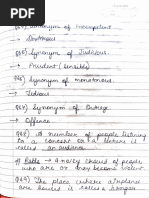 Q64) Synonym of Incompetent
→ Dexterous
Q65) Synonym of Judicious
→ Prudent (Sensible)
Q66) Synonym of monotonous
→ Tedious
Q67) Synonym of Outrage
→ Offence
Q68) A number of people listening
to a concert or a lecture is
called an audience.
A noisy crowd of people
who are or may become violent.
Q69) The place where airplanes
are housed is called a hangar.